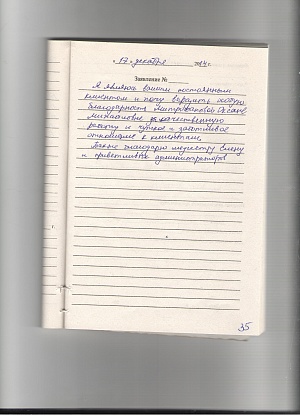 « 17 » декабря 2014 г.
Заявление №
Я являюсь вашим постоянным
клиентом и хочу выразить особую
благодарность Митрофановой Оксане
Михайловне за качественную
работу и чуткое и заботливое
отношение к клиентам.
Также благодарю медсестру Елену
и приветливых администраторов
35